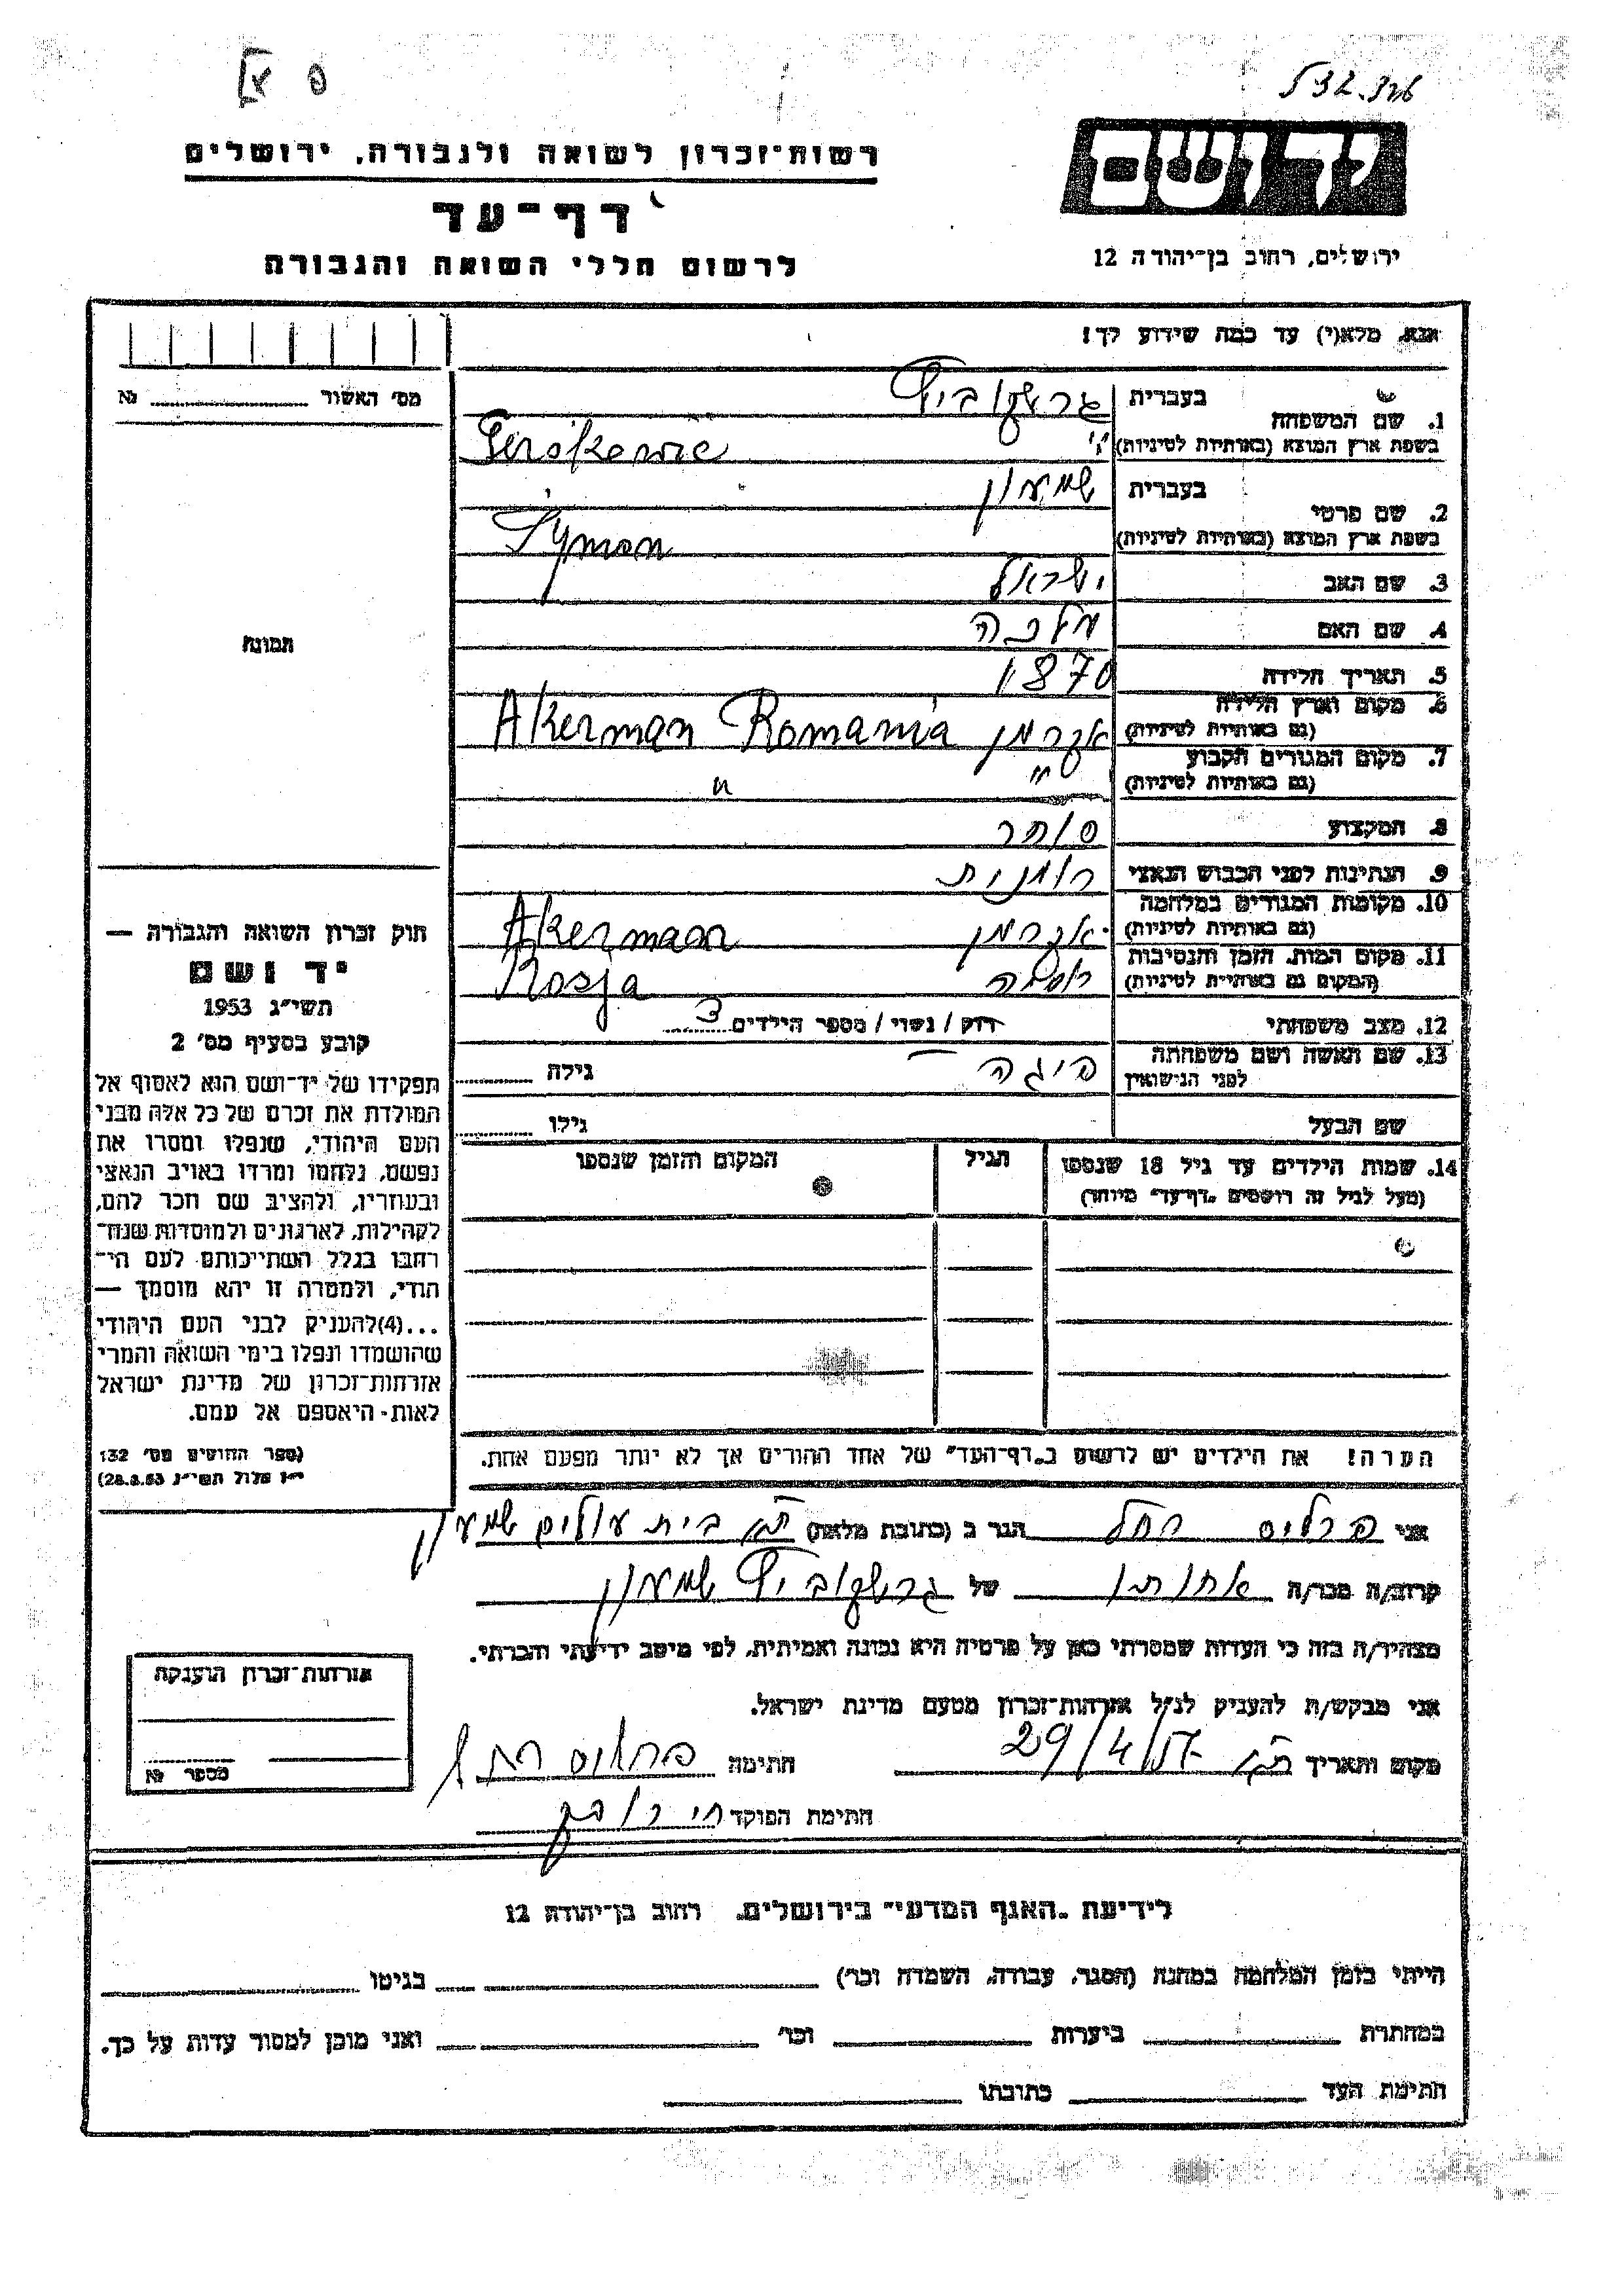 רשות־זכרון לשואה ולגבורה, ירושלים
דף־עד
לרשום חללי השואה והגבורה
יד ושם
ירושלים, רחוב בן־יהודה 12
אנא, מלא(י) עד כמה שידוע לך!
מס' האשור № 
תמונה
1. שם המשפחה בעברית גרשקוביץ
בשפת ארץ המוצא (באותיות לטיניות) Gerškowic
2. שם פרטי בעברית שמעון
בשפת ארץ המוצא (באותיות לטיניות) Symon
3. שם האב ישראל
4. שם האם מלכה
5. תאריך הלידה 1870
6. מקום וארץ הלידה (גם באותיות לטיניות) אקרמן Akerman Romania
7. מקום המגורים הקבוע (גם באותיות לטיניות) " "
8. המקצוע סוחר
9. הנתינות לפני הכבוש הנאצי רומנית
10. מקומות המגורים במלחמה (גם באותיות לטיניות) אקרמן Akerman
11. מקום המות, הזמן והנסיבות (המקום גם באותיות לטיניות) רוסיה Rosja
12. מצב משפחתי רווק / נשוי / מספר הילדים 3
13. שם האשה ושם משפחתה לפני הנישואין פיגה גילה
שם הבעל גילו
14. שמות הילדים עד גיל 18 שנספו הגיל המקום והזמן שנספו
(מעל לגיל זה רושמים „דף־עד" מיוחד)
הערה! את הילדים יש לרשום ב„דף־העד" של אחד ההורים אך לא יותר מפעם אחת.
חוק זכרון השואה והגבורה —
יד ושם
תשי"ג 1953
קובע בסעיף מס' 2
תפקידו של יד־ושם הוא לאסוף אל
המולדת את זכרם של כל אלה מבני
העם היהודי, שנפלו ומסרו את
נפשם, נלחמו ומרדו באויב הנאצי
ובעוזריו, ולהציב שם וזכר להם,
לקהילות, לארגונים ולמוסדות שנח־
רבו בגלל השתייכותם לעם הי־
הודי, ולמטרה זו יהא מוסמך —
...(4) להעניק לבני העם היהודי
שהושמדו ונפלו בימי השואה והמרי
אזרחות־זכרון של מדינת ישראל
לאות היאספם אל עמם.
(ספר החוקים מס' 132
י"ז אלול תשי"ג 28.8.53)
אני פרליס רחל הגר ב (כתובת מלאה) ת"א בית עולים שמעון
קרוב/ה מכר/ה אחותו של גרשקוביץ שמעון
מצהיר/ה בזה כי העדות שמסרתי כאן על פרטיה היא נכונה ואמיתית, לפי מיטב ידיעתי והכרתי.
אני מבקש/ת להעניק לנ"ל אזרחות־זכרון מטעם מדינת ישראל.
מקום ותאריך ת"א 29/4/57 חתימה פרליס רחל
חתימת הפוקד
אזרחות־זכרון הוענקה
מספר №
לידיעת „האגף המדעי" בירושלים, רחוב בן־יהודה 12
הייתי בזמן המלחמה במחנה (הסגר, עבודה, השמדה וכו') בגיטו
במחתרת ביערות וכו' ואני מוכן למסור עדות על כך.
חתימת העד כתובתו